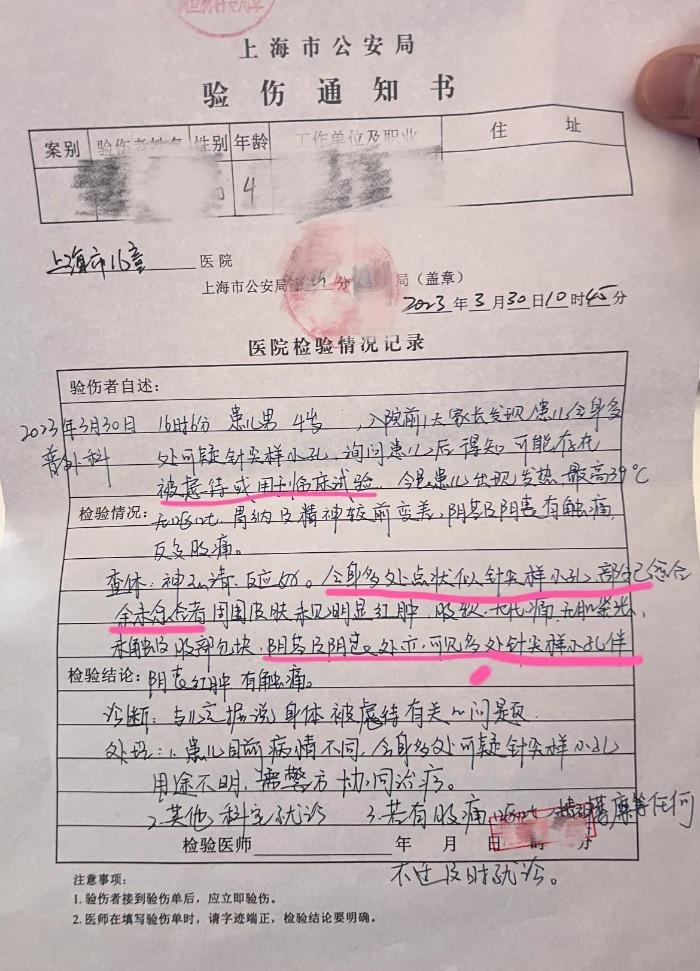 上海市公安局
验伤通知书
案别 验伤者姓名 性别 年龄 工作单位及职业 住址
4
上海市儿童 医院
上海市公安局 分 局(盖章)
2023年3月30日10时45分
医院检验情况记录
验伤者自述:
2023年3月30日 16时6分 患儿男 4岁 ,入院前1天家长发现患儿全身多
普外科 处可疑针尖样小孔,询问患儿后得知可能存在
被虐待或用于临床试验。今晨患儿出现发热,最高39℃
检验情况: 无呕吐,胃纳及精神较前变差,阴茎及阴囊有触痛,
反复腹痛。
查体:神志清,反应好。全身多处点状似针尖样小孔,部分已愈合
余未愈合者周围皮肤未见明显红肿,腹软,无压痛,无肌紧张,
未触及腹部包块,阴茎及阴囊处亦可见多处针尖样小孔伴
检验结论: 阴囊红肿有触痛。
诊断: 身体被虐待有关的问题
处理:1.患儿目前病情不同,全身多处可疑针尖样小孔
用途不明,需警方协同治疗。
2.其他科室就诊 3.若有腹痛 呕吐 等任何
检验医师 年 月 日 时 分
不适及时就诊。
注意事项:
1.验伤者接到验伤单后,应立即验伤。
2.医师在填写验伤单时,请字迹端正,检验结论要明确。